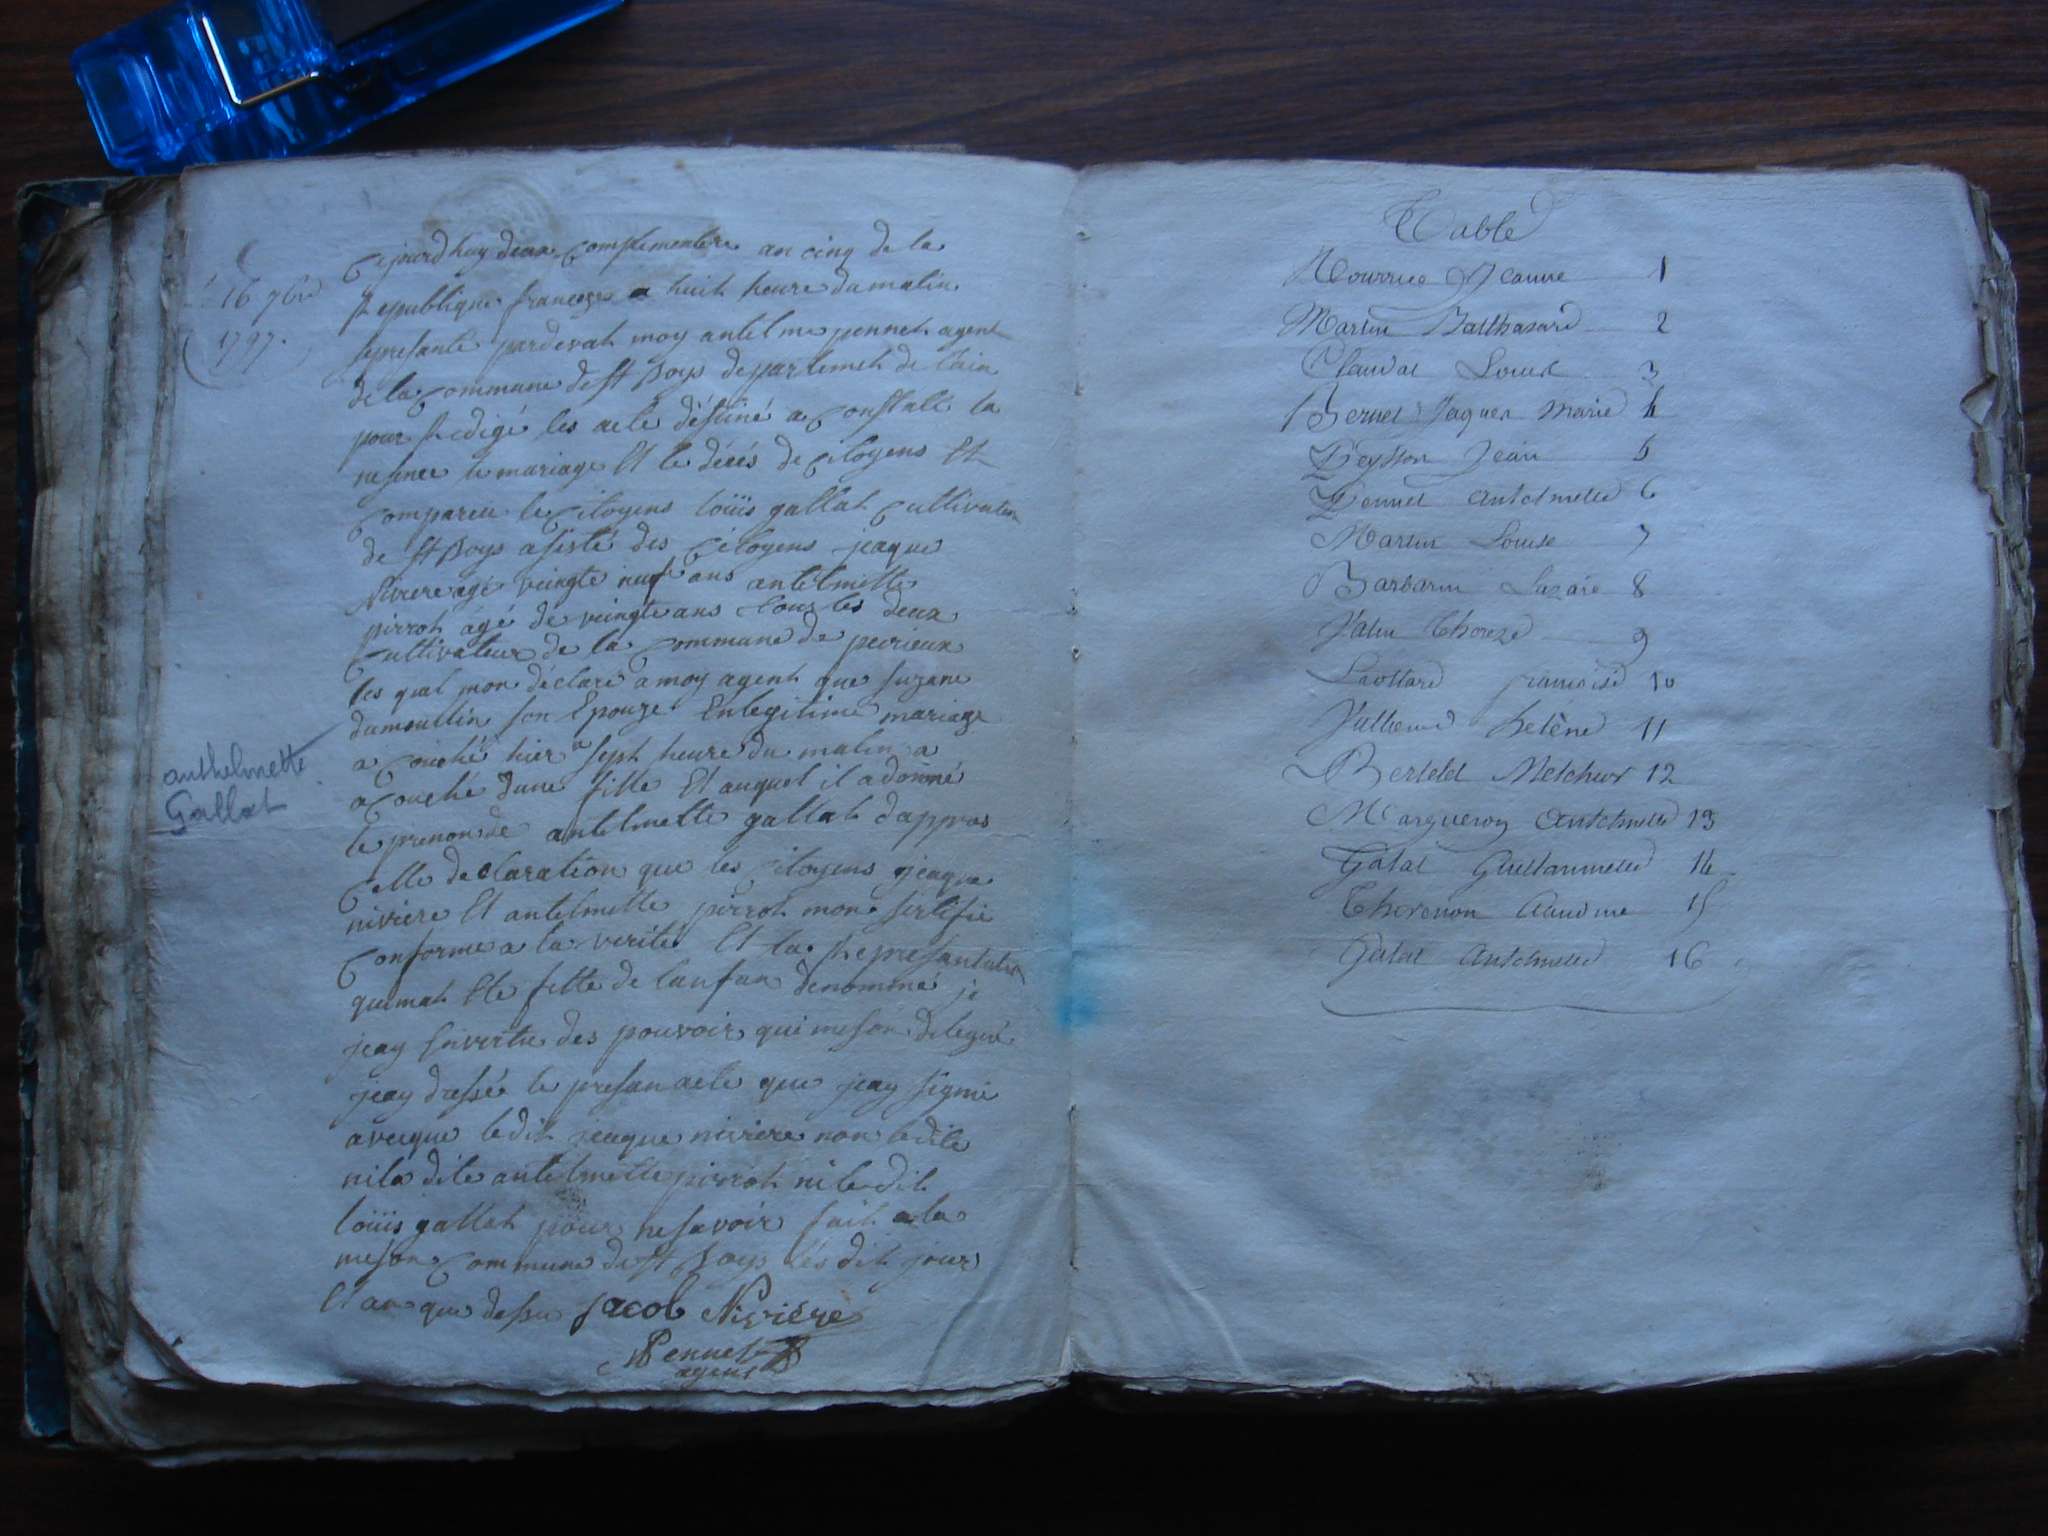 16 7bre
1797.
anthelmette
Gallat
Cejourdhuy deux Complementere an cinq de la
Republique franceze a huit heure du matin
sepresante pardevat moy antelme pennet agent
de la Commune de St Boys departement de l'ain
pour Redigé les acte déstiné a Constaté la
nesence le mariage Et le décés de Citoyens Et
Compareu le Citoyens loüis gallat Cultivateur
de St Boys asisté des Citoyens jeaque
Niviere agé veingte neuf ans antelmette
pirrot ágé de veingte ans tous les deux
Cultivateur de la Commune de peirieux
les quel mon déclaré a moy agent que suzane
dumoullin son Epouze En legitime mariage
a Couché hier a sept heure du matin a
acouché dune fille Et auquel il a donné
le prenon de antelmette gallat dappres
Celle declaration que les Citoyens jeaque
niviere Et antelmette pirrot mon sertifié
Conforme a la verité Et la Represantation
quimat Ete fette de lanfan denommé je
jeay Envertu des pouvoir qui meson delegué
jeay dressée le presan acte que jeay signé
aveque ledit jeaque niviere non ledite
nila dite antelmette pirrot ni le dit
loüis gallat pour ne savoir fait a la
meson Commune de St Boys lés dit jour
Et an que dessu Jacob Nivière
Pennet
agent
Table
Nourrice Jeanne 1
Martin Balthasard 2
Claudat Louise 3
Bernet Jaques Marie 4
Peysson Jean 5
Pennet Antelmette 6
Martin Louise 7
Barbarin Lazare 8
Thereze 9
françoise 10
helène 11
Bertelet Melchior 12
Margueron Antelmette 13
Galat Guillaumette 14
Thevenon Claudine 15
Galat Antelmette 16